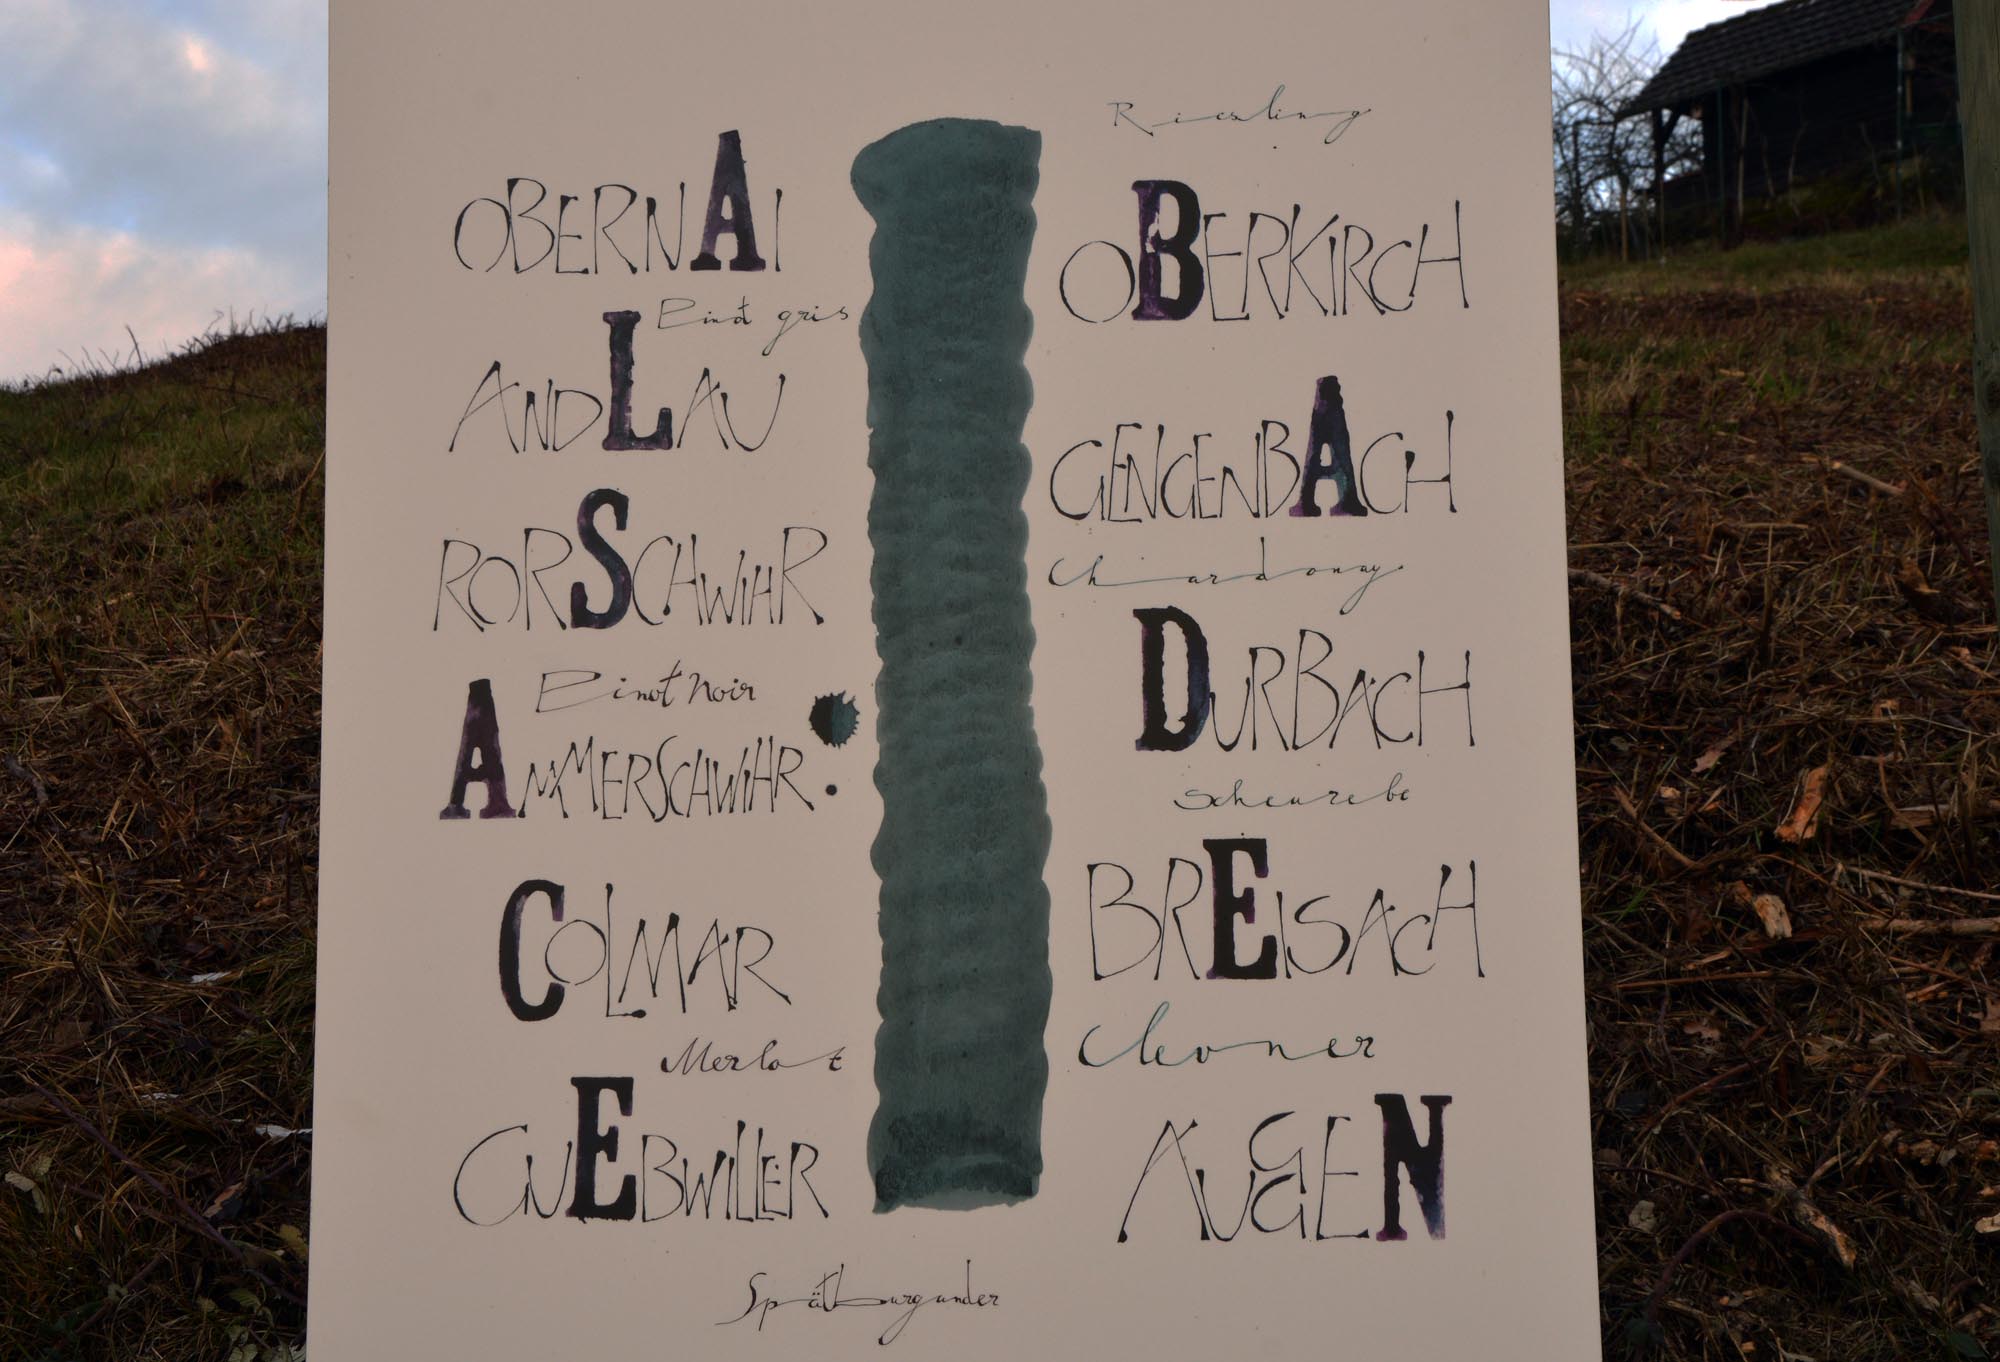 OBERNAI
Pinot gris
ANDLAU
RORSCHWIHR
Pinot Noir
AMMERSCHWIHR
COLMAR
Merlot
GUEBWILLER
Riesling
OBERKIRCH
GENGENBACH
Chardonnay
DURBACH
Scheurebe
BREISACH
Clevner
AUGGEN
Spätburgunder